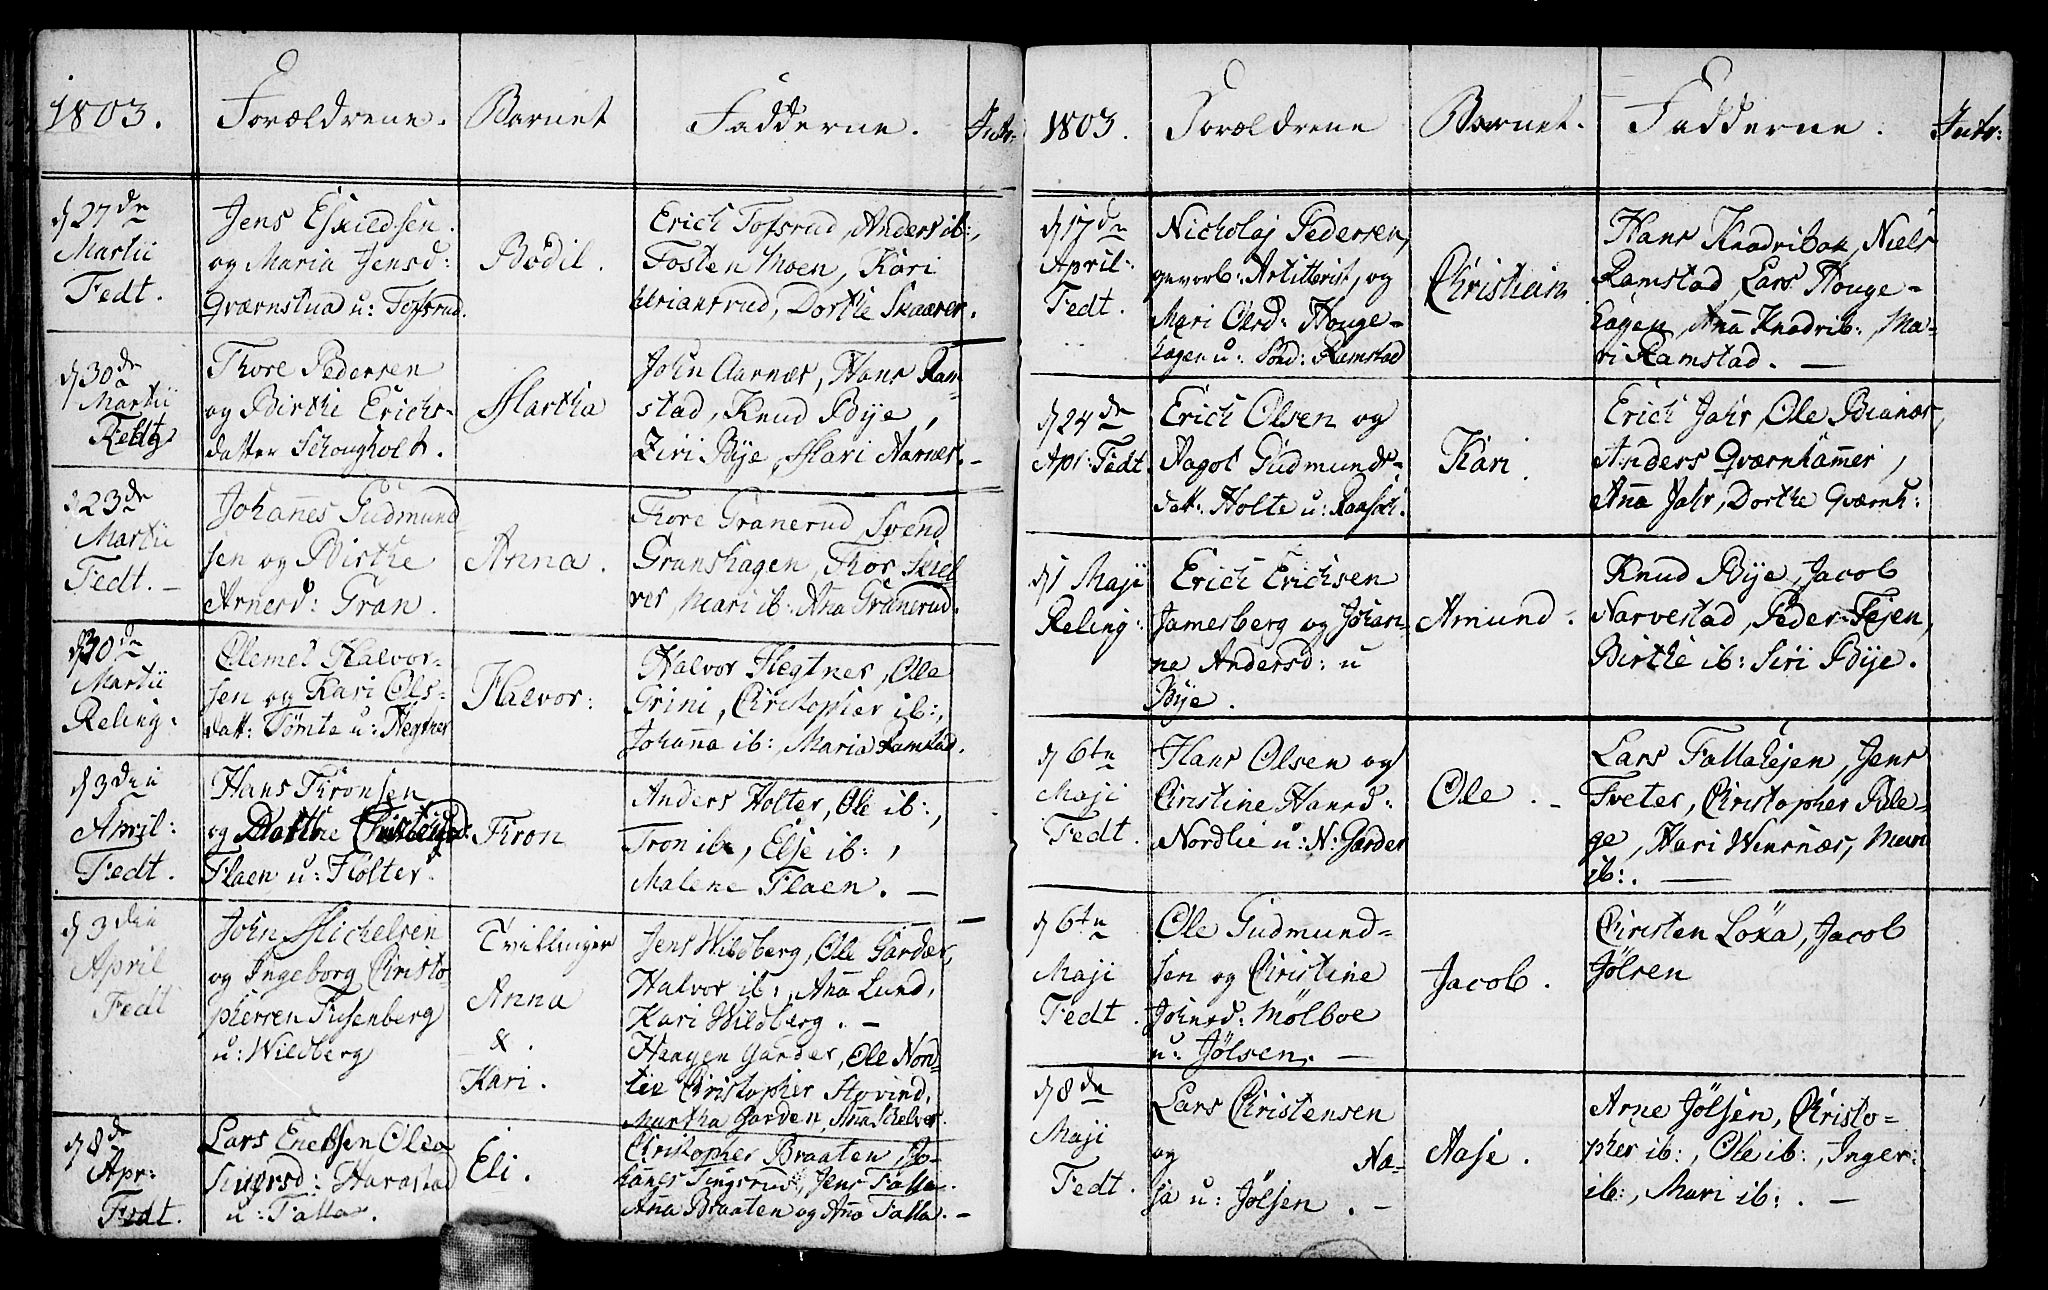 1803. Forældrene. Barnet Fadderne. Intr:
d 27de
Martii
Fedt.
Jens Eskildsen.
og Maria Jensd:
Qværnstua u: Tofsrud.
Bodil.
Erich Tofsrud, Anders ib:,
Tosten Moen, Kari
Uriansrud, Dorthe Skaarer.
d 30de
Martii
Thore Pedersen
og Birthe Erichs-
datter Schougholt.
Martha
John Aarnæs, Hans Ram-
stad, Knud Bye,
Siri Bye, Mari Aarnæs.-
23de
Martii
Fedt.-
Johañes Gudmund-
sen og Birthe
Arnesd: Gran.
Anna.
Thore Granerud Svend
Granshagen, Thor Skiel
ver, Mari ib: Aña Granerud.
d 30de
Martii
Reling:
Olemel Halvor-
sen og Kari Ols-
datt: Tømte u: Hegtnes
Halvor:
Halvor Hegtnes, Ole
Grini, Christopher ib:,
Johaña ib:, Maria Ramstad.
d 3den
April:
Fedt.
Hans Tronsen
og Dorthe
Flaen u: Holter.
Tron
Anders Holter, Ole ib:,
Tron ib, Else ib:,
Malene Flaen. -
d 3den
April
Fedt
John Michelsen
og Ingeborg Christo
phersen Fusenberg
u: Wildberg
Tvillinger
Anna
&.
Kari.
Jens Wildberg, Ole Garder,
Halvor ib:, Aña Lund,
Kari Wildberg. -
Haagen Garder, Ole Nord-
lie Christopher Hovind,
Martha Garden, Aña Schelver.
d 8de
Apr:
Fedt.
Lars Enersen Olea
Siversd: Harastad
u: Falla.
Eli.
Christopher Braaten, Jo-
hañes Tingsrud, Jens Falla.
Aña Braaten og Aña Falla. -
1803. Forældrene Barnet. Fadderne. Intr:
d 17de
April:
Fedt.
Nicholaj Pedersen,
gevorb: Artillerist, og
Mari Olsd: Houge-
hagen u: Sönd: Ramstad
Christian
Hans Knadribak, Niels
Ramstad, Lars Houge-
hagen, Aña Knadrib:, Ma-
ri Ramstad. -
d 24de
Apr: Fedt.
Erich Olsen og
Aagot Gudmunds-
datt: Holte u: Raasch:
Kari.
Erich Jahr, Ole Bianæs,
Anders Qværnham̃er,
Aña Jahr, Dorthe Qværnh:
d 1 Maji
Reling:
Erich Erichsen
Jamesberg og Johan-
ne Andersd: u
Bye.
Amund.
Knud Bye, Jacob
Narvestad, Peder Tejen,
Birthe ib: Siri Bye.
d 6te
Maji
Fedt.
Hans Olsen og
Christine Hansd:
Nordlie u: N: Garder
Ole. -
Lars Fallahejen, Jens
Tveter, Christopher Rele-
ge, Kari Wensnæs, Mari
ib:. -
d 6te
Maji
Fedt.
Ole Gudmund-
sen og Christine
Johnsd: Mölboe
u: Jölsen. -
Jacob.
Christen Löxa, Jacob
Jölsen
d 8de
Maji
Fedt.
Lars Christensen
og Na-
sa u: Jölsen. -
Aase.
Arne Jölsen, Christo-
pher ib:, Ole ib:, Inger:
ib:, Mari ib:. -